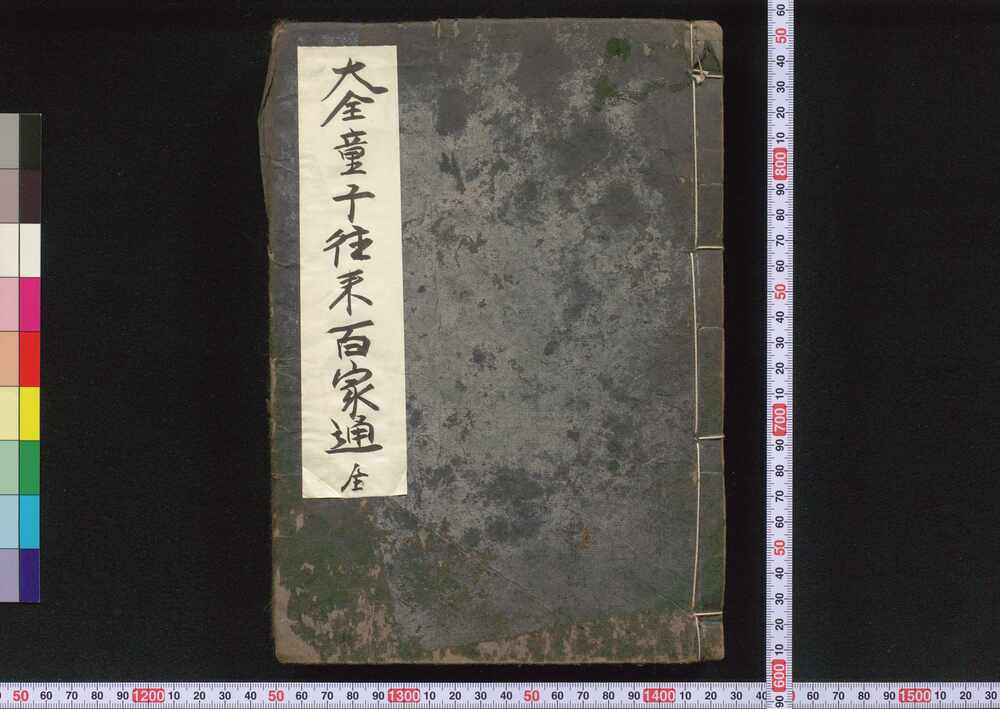 大全童子往来百家通 全
60 50 40 30 20 10 800 90 80 70 60 50 40 30 20 10 700 90 80 70 60 50 40 30 20 10 600 90
50 60 70 80 90 1200 10 20 30 40 50 60 70 80 90 1300 10 20 30 40 50 60 70 80 90 1400 10 20 30 40 60 70 80 90 1500 10 20 30